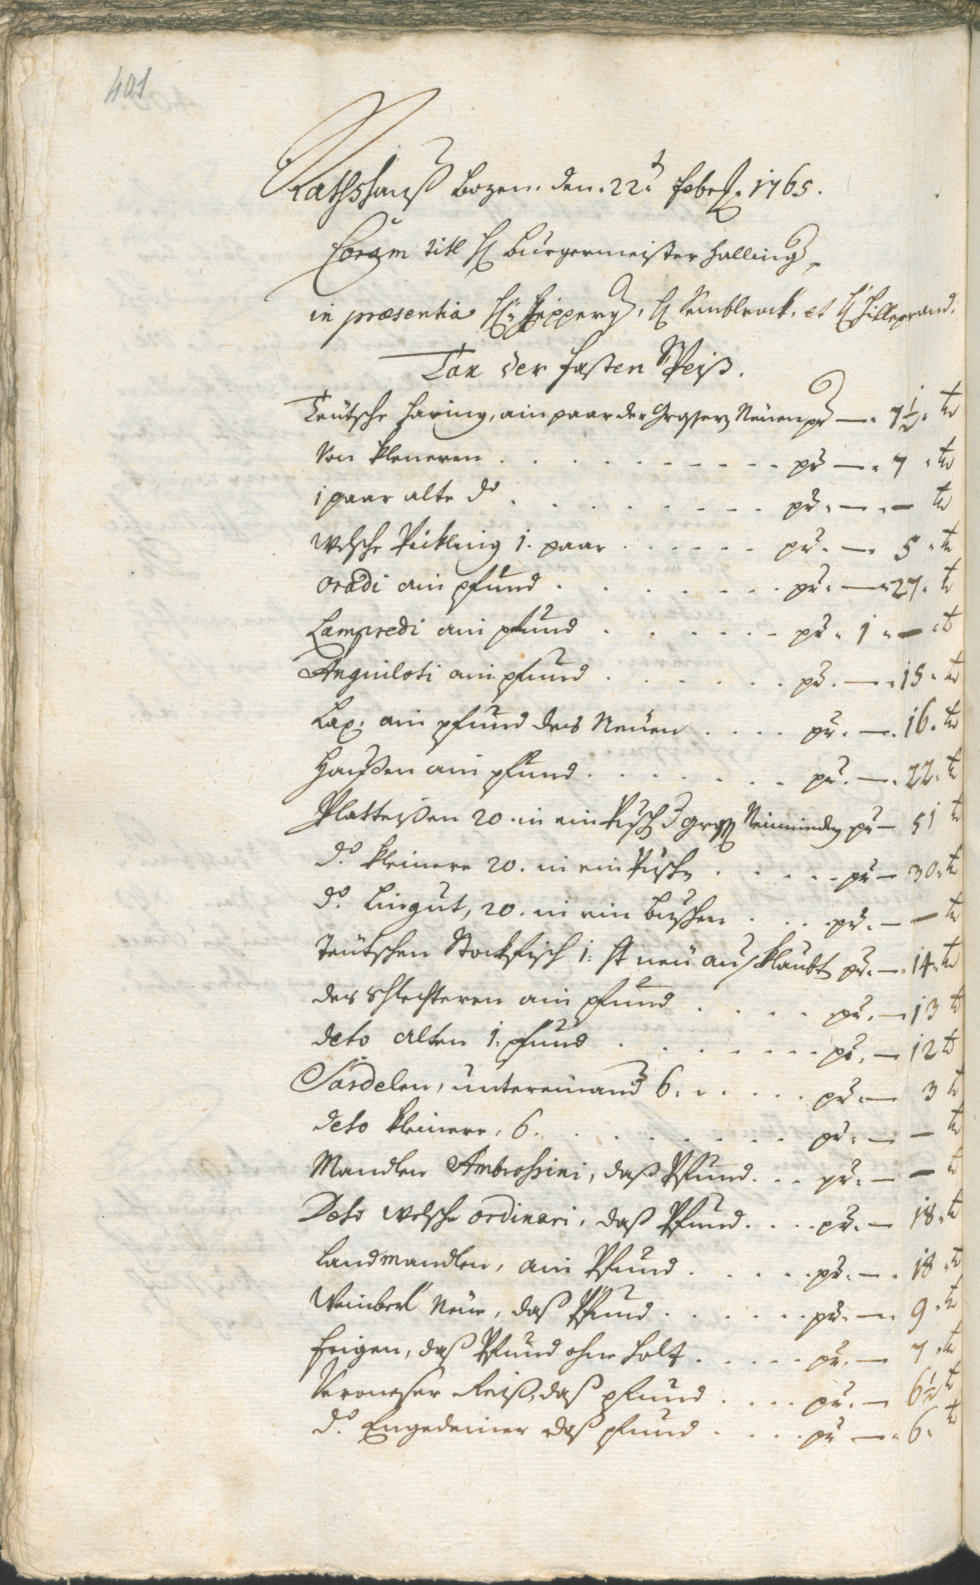 401
Rathshauß Bozen. den. 22.t febr. 1765.
Coram titl H Burgermeister Hallinger,
in præsentia H: H Seinbleock. et H Hilleprand.
Tax der fasten Speiß.
Teütsche Häring, ain paar der Grössern Neüen pr — . 7 1/2 . kr
Von kleneren . . . . . . . . . . pr — . 7 . kr
1 paar alte do . . . . . . . . pr . — . — kr
Welsche Pickling 1. paar . . . . . . pr . — . 5 . kr
Oradi ain pfund . . . . . . . pr . — . 27 . kr
Lampredi ain pfund . . . . . . pr . 1 . — . kr
Anguiloti ain pfund . . . . . . pr . — . 15 . kr
Lax. ain pfund des Neüen . . . . pr . — . 16 . kr
Haußen ain pfund . . . . . . . pr . — . 22 . kr
Platteißen 20. in ein Pusch pr — 51 kr
do. kleinere 20. in ein Puschen . . . . . pr — 30 . kr
do. Lingut, 20. in ein Buschen . . . pr . — — kr
Teütschen Stockfisch 1. neü außklaubt pr . — . 14 . kr
des schlechteren ain pfund . . . . pr . — 13 kr
deto alten 1. pfund . . . . . . . pr . — 12 kr
Sardelen, untereinand 6. . . . . . pr . — 3 kr
deto kleinere, 6. . . . . . . . . pr . — — kr
Mandlen Ambrosini, daß Pfund. . . pr . — — kr
Deto welsche ordinari, daß Pfund. . . . pr . — 18 . kr
Landmandlen, ain Pfund . . . . . pr . — . 18 . kr
Weinberl neüe, daß Pfund . . . . . . pr . — . 9 . kr
Feigen, daß Pfund ohne Holz . . . . . pr . — 7 . kr
Veroneser Reiß, daß pfund . . . . pr . — 6 1/2 . kr
do. Engedeiner daß pfund . . . . pr — . 6 . kr